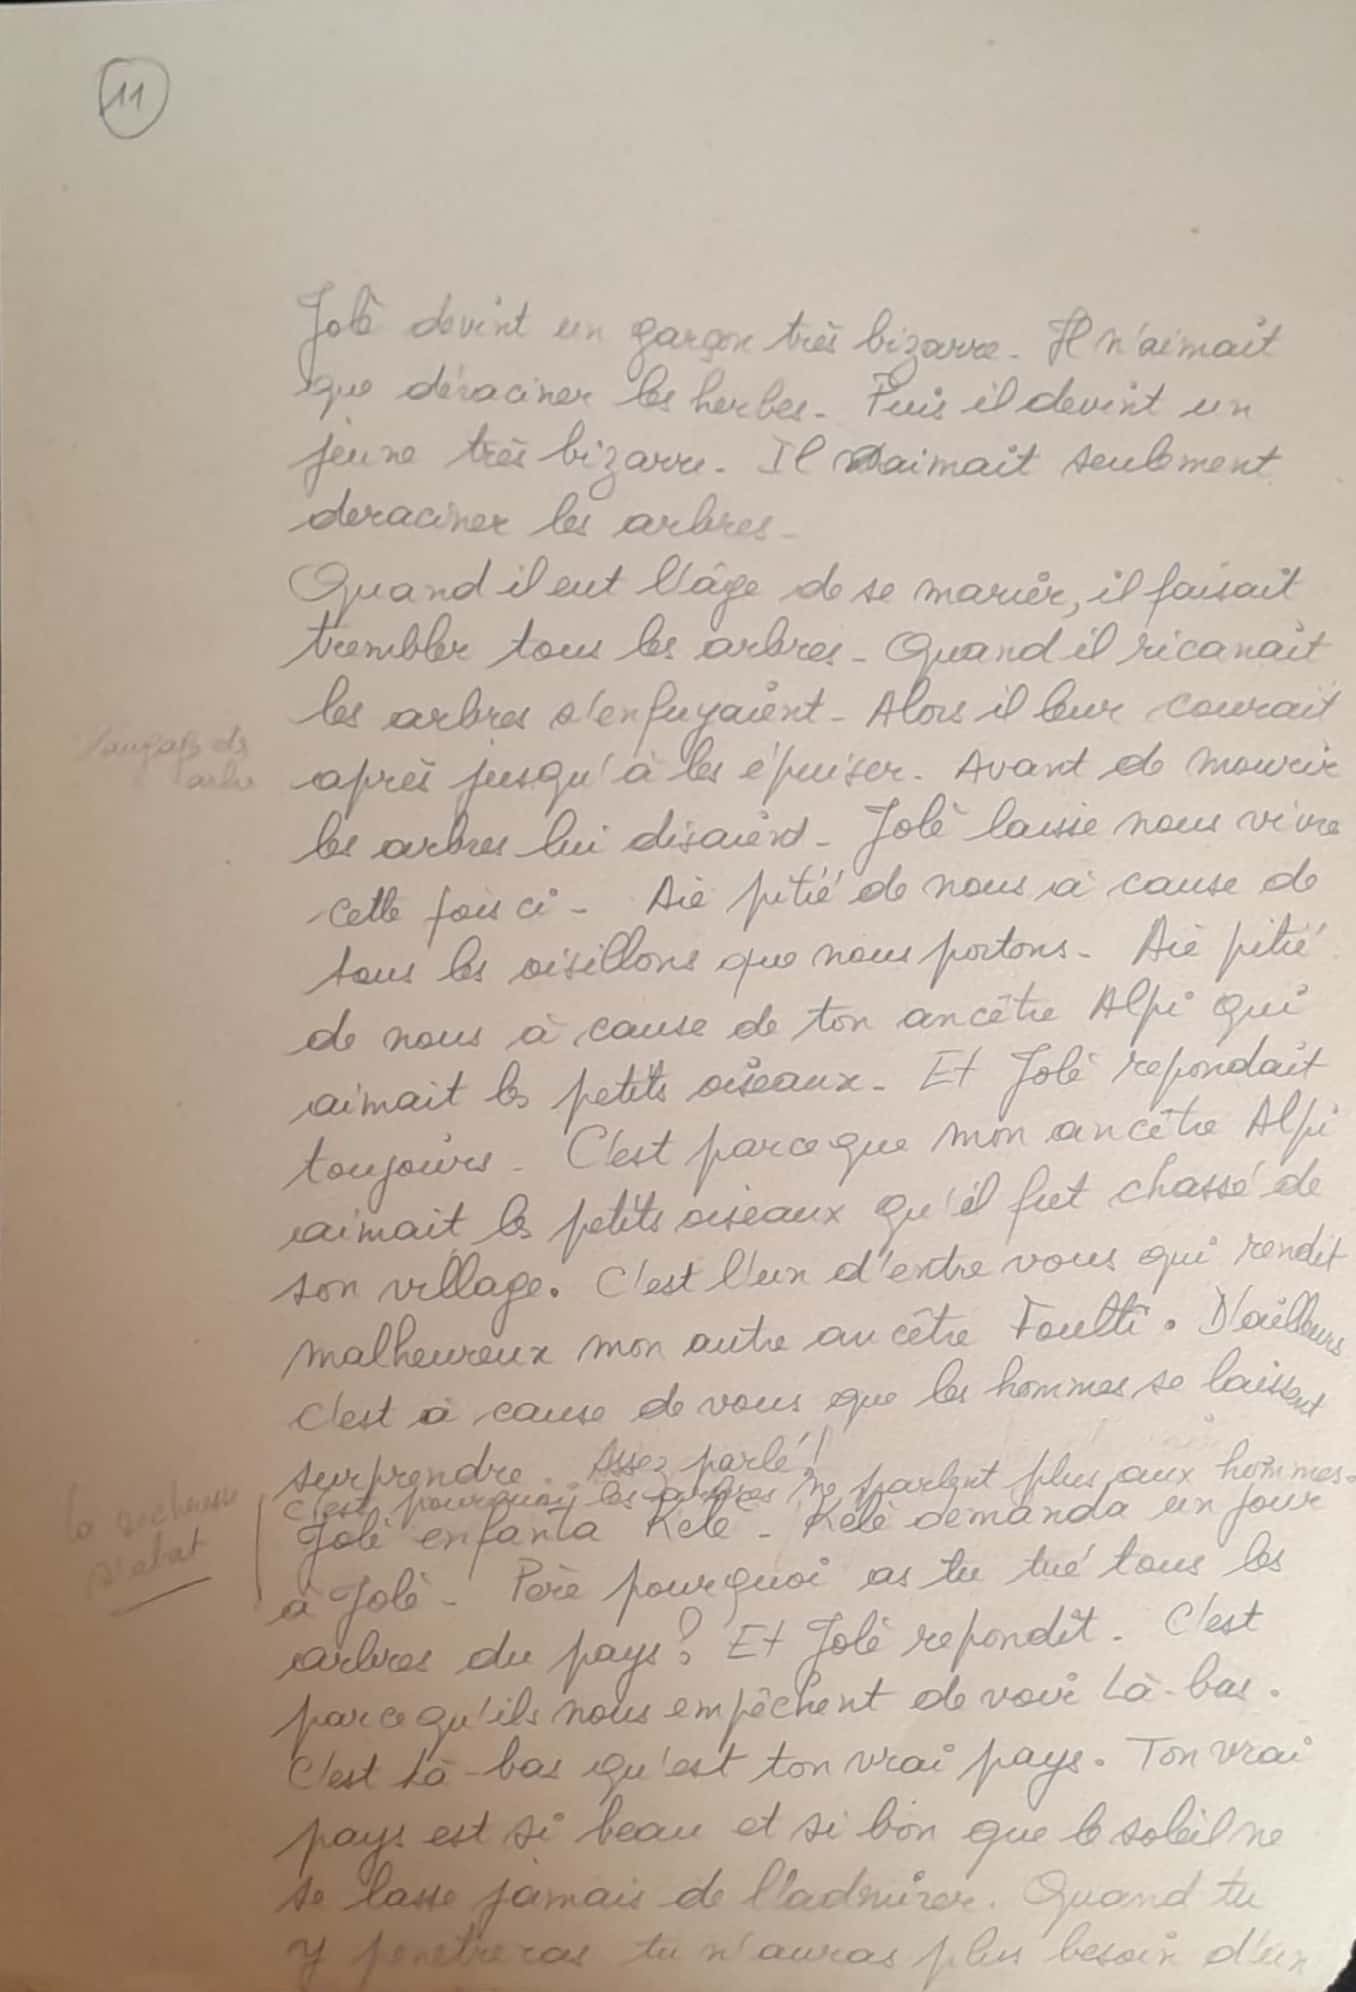 11
Jolè devint un garçon très bizarre. Il n'aimait
que déraciner les herbes. Puis il devint un
jeune très bizarre. Il aimait seulement
deraciner les arbres.
Quand il eut l'âge de se marier, il faisait
trembler tous les arbres. Quand il ricanait
les arbres s'enfuyaient. Alors il leur courait
après jusqu'à les épuiser. Avant de mourir
les arbres lui disaient. Jolè laisse nous vivre
cette fois ci. Aie pitié de nous à cause de
tous les oisillons que nous portons. Aie pitié
de nous à cause de ton ancêtre Alpi qui
aimait les petits oiseaux. Et Jolè repondait
toujours. C'est parceque mon ancêtre Alpi
aimait les petits oiseaux qu'il fut chassé de
son village. C'est l'un d'entre vous qui rendit
malheureux mon autre ancêtre Foulti. D'ailleurs
c'est à cause de vous que les hommes se laissent
surprendre. Assez parlé!
C'est pourquoi les arbres ne parlent plus aux hommes.
la secheresse
s'abat
Jolè enfanta Kélé. Kélé demanda un jour
à Jolè. Père pourquoi as tu tué tous les
arbres du pays? Et Jolè repondit. C'est
parcequ'ils nous empêchent de voir Là-bas.
C'est Là-bas qu'est ton vrai pays. Ton vrai
pays est si beau et si bon que le soleil ne
se lasse jamais de l'admirer. Quand tu
y penetreras tu n'auras plus besoin d'un